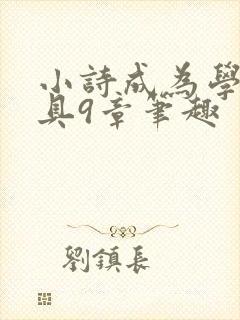 小詩成為學
具9章筆趣
劉鎮長